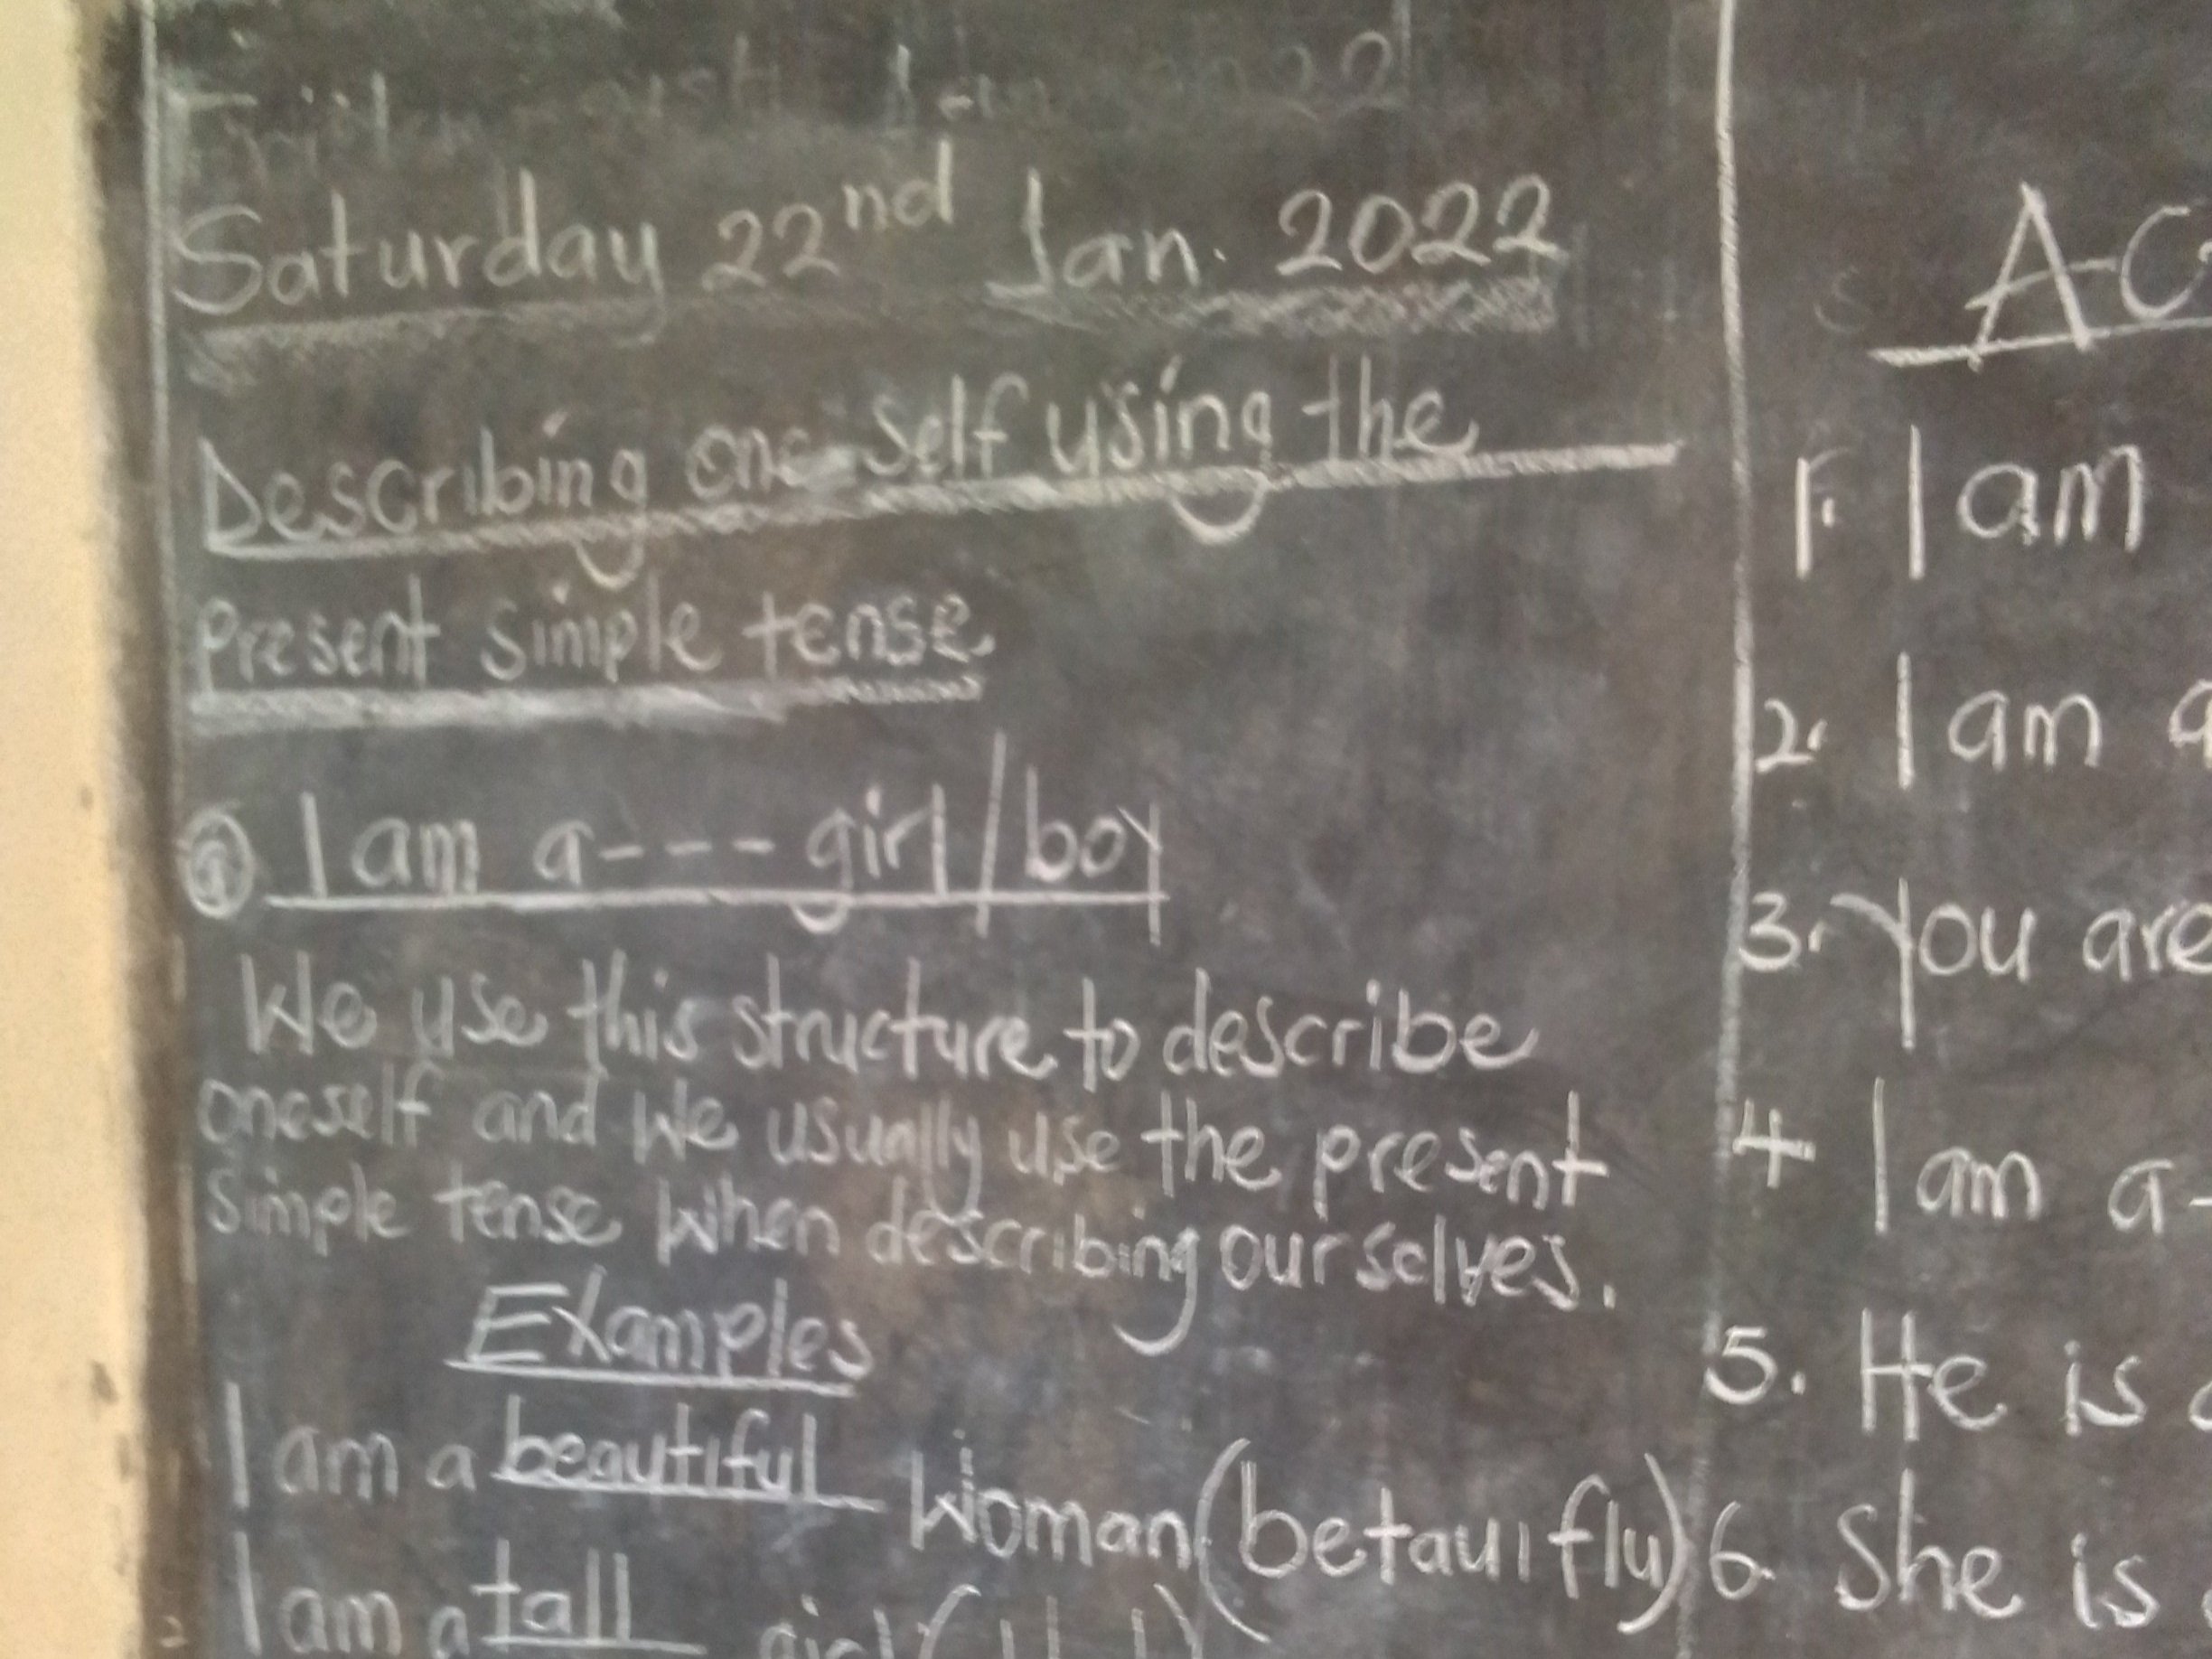 Saturday 22nd Jan. 2022
Describing one self using the
present simple tense.
(a) I am a---- girl/boy
We use this structure to describe
oneself and we usually use the present
simple tense when describing our selves.
Examples
I am a beautiful woman (betauifly)
I am a tall girl
AC
1. I am
2. I am a
3. You are
4 I am a-
5. He is
6. She is